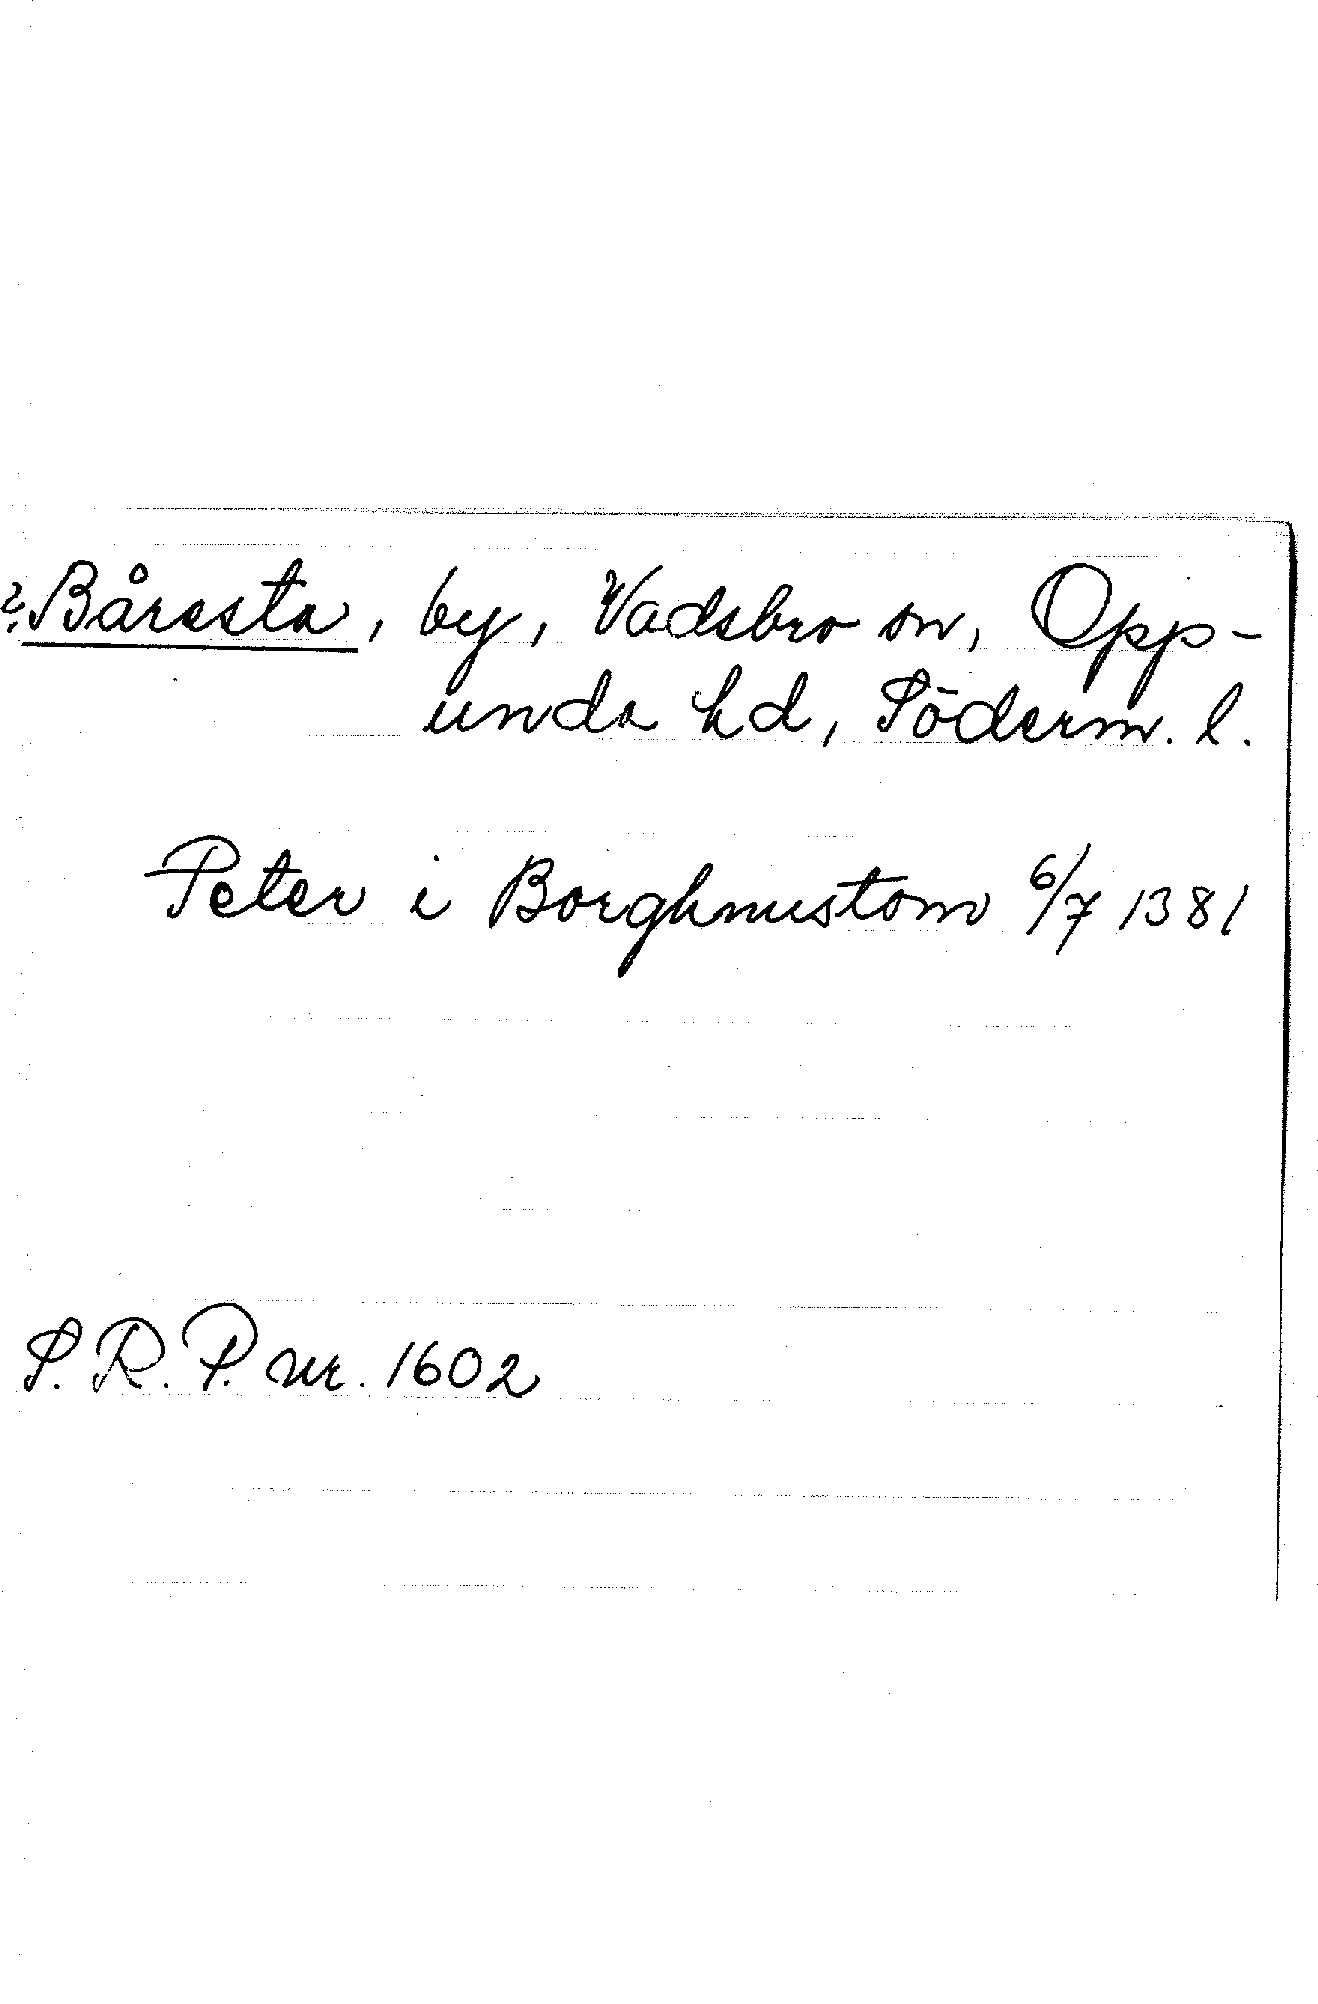 ? Båresta, by, Vadsbro sn, Opp-
unda hd, Söderm. l.
Peter i Borghmestom 6/7 1381
S. R. P. nr. 1602